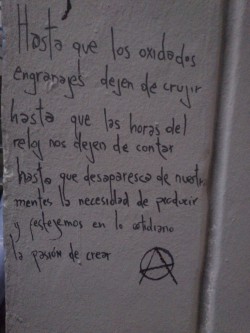 Hasta que los oxidados
engranajes dejen de crujir
hasta que las horas del
reloj nos dejen de contar
hasta que desaparesca de nuestr
mentes la necesidad de producir
y festejemos en lo cotidiano
la pasión de crear